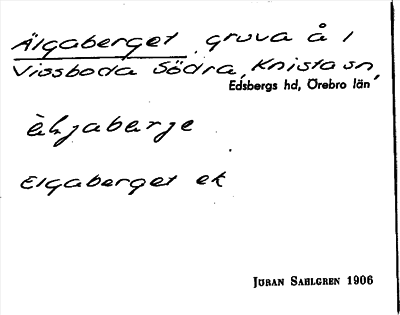 Älgaberget gruva å 1
Vissboda Södra, Knista sn,
Edsbergs hd, Örebro län
Elgaberget ek
Jöran Sahlgren 1906